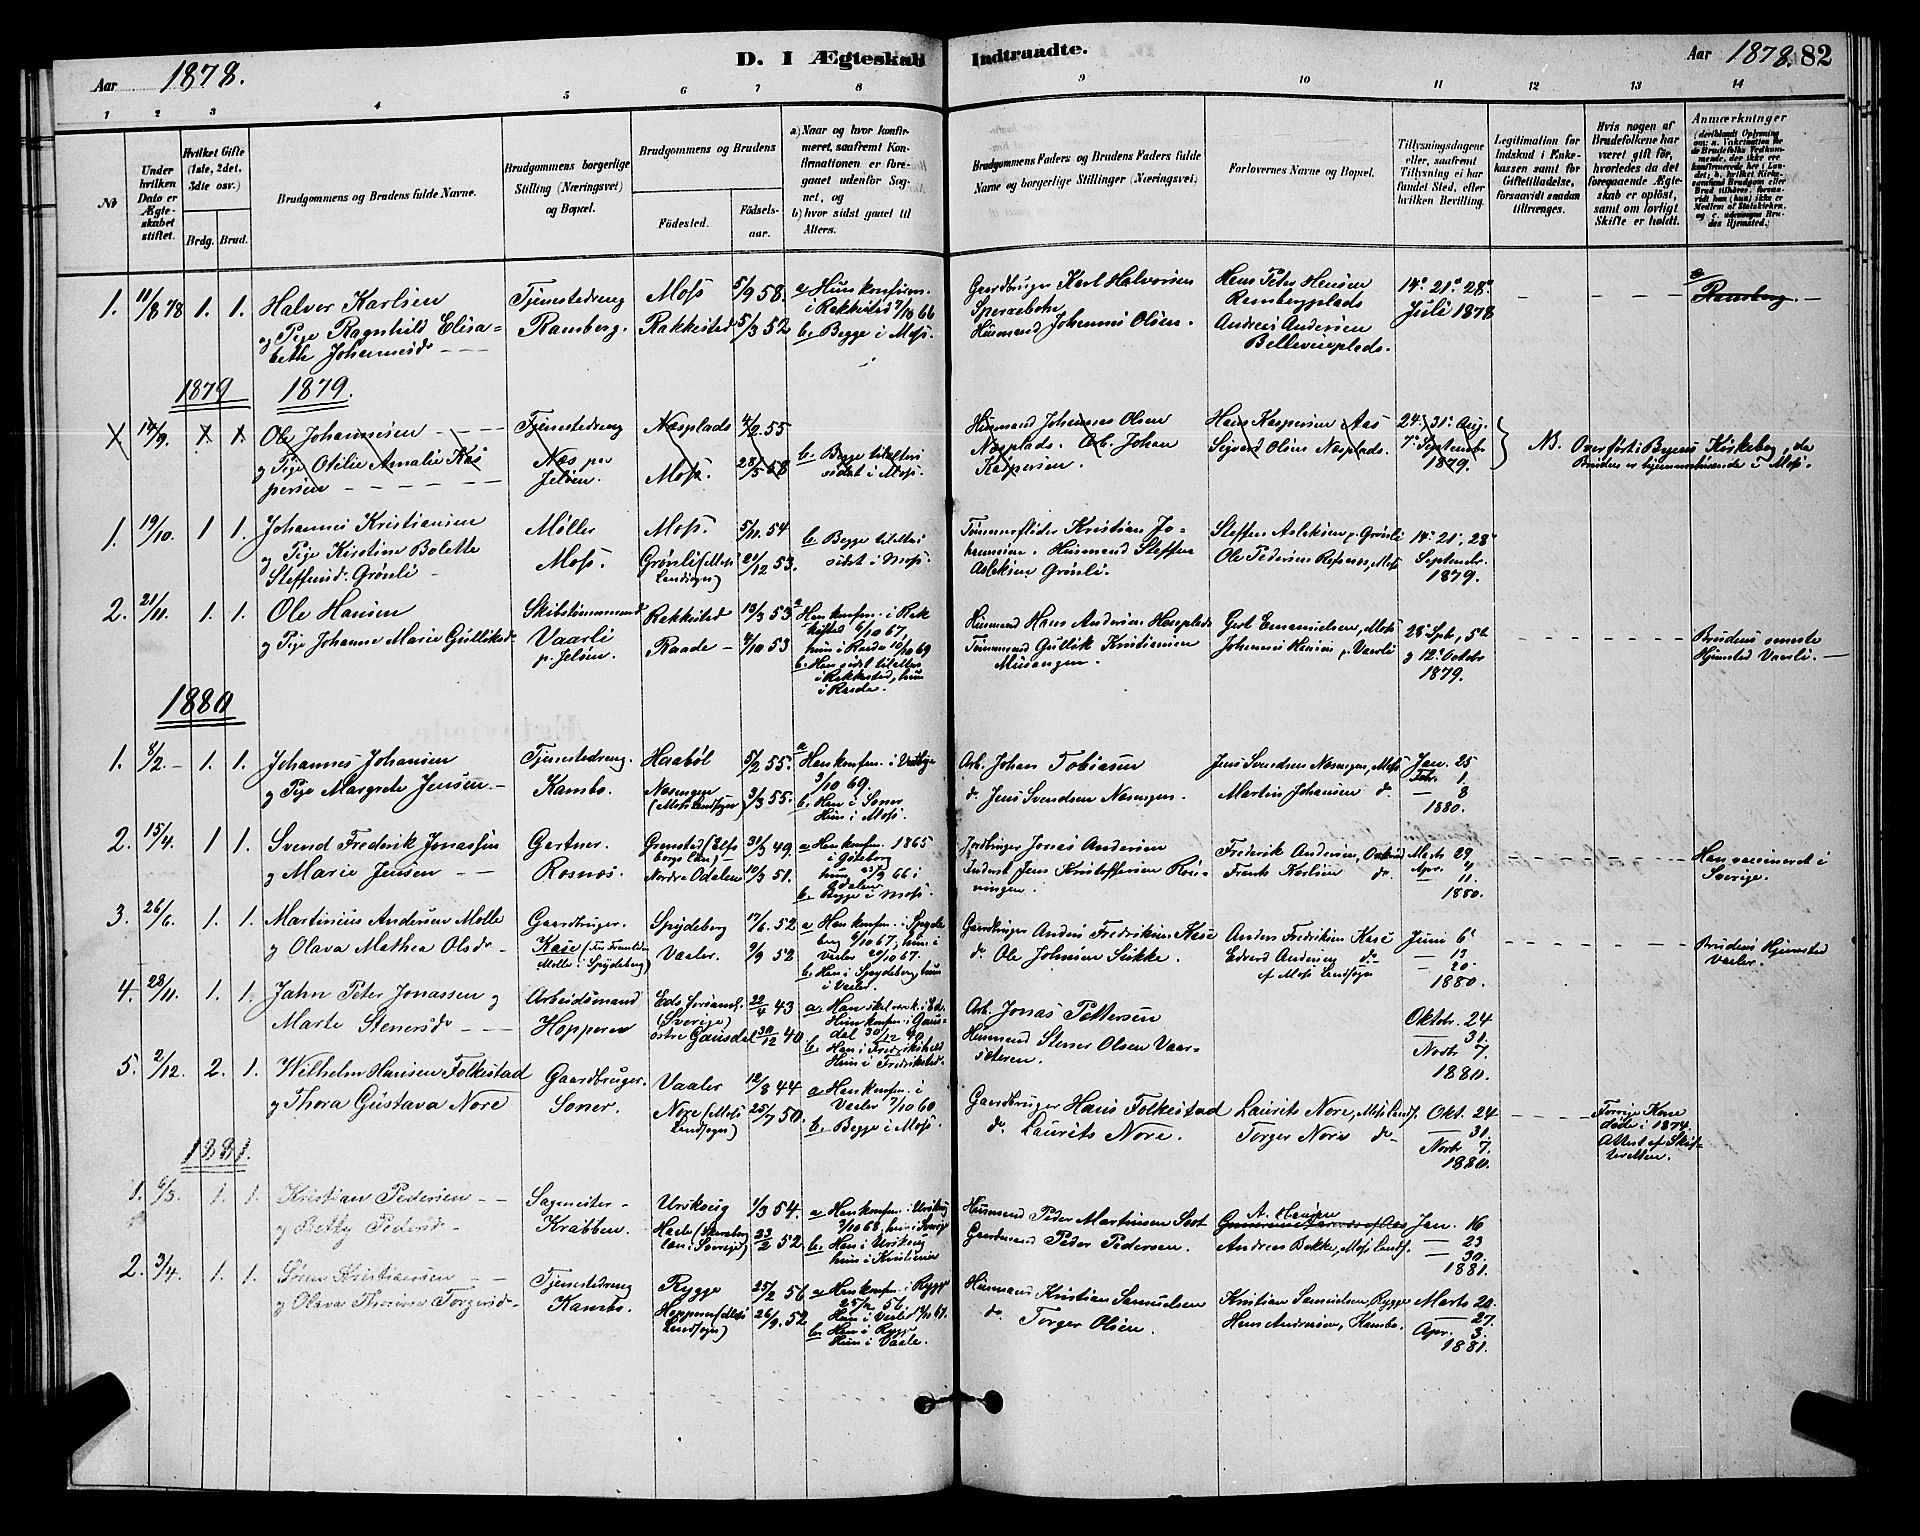 Aar 1878.
D. I Ægteskab Indtraadte.
Aar 1878. 82
1 2 3 4 5 6 7 8 9 10 11 12 13 14
No
Under hvilken Dato er Ægteskabet stiftet.
Hvilket Gifte (1ste, 2det, 3die osv.)
Brdg. Brud.
Brudgommens og Brudens fulde Navne.
Brudgommens borgerlige Stilling (Næringsvei) og Bopæl.
Brudgommens og Brudens
Fødested. Fødselsaar.
a) Naar og hvor konfirmeret, saafremt Konfirmationen er foregaaet udenfor Sognet, og
b) hvor sidst gaaet til Alters.
Brudgommens Faders og Brudens Faders fulde Navne og borgerlige Stillinger (Næringsvei)
Forlovernes Navne og Bopæl.
Tillysningsdagene eller, saafremt Tillysning ei har fundet Sted, efter hvilken Bevilling.
Legitimation for Indskud i Enkekassen samt for Giftetilladelse, forsaavidt saadan tiltrænges.
Hvis nogen af Brudefolkene har været gift før, hvorledes da det foregaaende Ægteskab er opløst, samt om lovligt Skifte er holdt.
Anmærkninger
1. 11/8 78 1. 1. Halvor Karlsen
og Pige Ragnhild Elisabeth Johannesd.
Tjenestedreng Ramberg.
Moss 5/9 58.
Rakkestad 5/3 52
a Hun konfirm. i Rakkestad 7/10 66
b. Begge i Moss.
Gaardbruger Karl Halvorsen
Husmand Johannes Olsen.
Hans Peter Hansen
Rambergplads
Andreas Andersen
Bellevueplads.
14. 21. 28. Juli 1878
Ramberg.
1879 1879.
14/9. Ole Johannesen
og Pige Otilie Amalie Kaspersen
Tjenestedreng
Næs paa Jeløen.
Næsplads 4/2 55
Moss. 28/5 58
b. Begge tilalters sidst i Moss.
Husmand Johannes Olsen
Næsplads. Arb. Johan
Kaspersen.
Hans Kaspersen Aas
Sigvard Olsen Næsplads.
24. 31. Aug.
7. Septembr
1879.
NB. Overført i Byens Kirkebog, da
Bruden er hjemmehørende i Moss.
1. 19/10. 1 1. Johannes Kristiansen
og Pige Kirstine Bolette
Steffensd. Grønli
Møller
Moss.
Moss. 5/11. 54
Grønli (Moss Landsogn) 21/12 53.
b. Begge tilalters sidst i Moss.
Tømmerfløder Kristian Johannesen. Husmand Steffen
Aslaksen Grønli.
Steffen Aslaksen p. Grønli
Ole Pedersen Rosnæs, Moss
14. 21. 28.
Septembr.
1879.
2. 21/11. 1. 1. Ole Hansen
og Pige Johanne Marie Gulliksd.
Skibstømmermand
Vaarli
p. Jeløen.
Rakkestad 13/3 53
Raade 4/10 53
a Han konfirm. i Rakkestad 6/10 67,
hun i Raade 10/10 69
b. Han sidst tilalters
i Rakkestad, hun
i Raade.
Husmand Hans Andersen
Tømmermand Gullik Kristiansen
Gerh Emanuelsen, Moss
Johannes Hansen p. Vaarli
28. Sptb., 5te
og 12. Octobr
1879.
Brudens seneste
Hjemsted Vaarli.
1880
1. 8/2. 1. 1. Johannes Johansen
og Pige Margrete Jensen.
Tjenestedreng.
Kambo.
Haabøl 5/2 55.
Næsengen (Moss Landsogn) 3/3 55.
a Han konfirm. i
3/10 69.
b. Han i Soner
Hun i Moss.
Arb. Johan Tobiasen
do. Jens Svendsen Næsengen.
Jens Svendsen Næsengen, Moss
Martin Johansen do.
Jan. 25
Febr. 1
8
1880.
2. 15/4. 1 1. Svend Frederik Jonassen
og Marie Jensen
Gartner.
Rosnæs.
49.
Nordre Odalen 10/3 51.
a Han konfirm. 1865
i Göteborg
hun 23/9 66 i
Odalen.
b. Begge i Moss.
Jordbruger Jonas Andersen
Jens Kristoffersen
Frederik Andersen,
Frank Karlsen do.
Marts 29
Apr. 4
11.
1880.
Han vaccineret i
Sverige.
3. 26/6. 1. 1. Martinius Andersen Molle
og Olava Mathea Olsd.
Gaardbruger.
Molle i Spydeberg)
Spydeberg 17/6. 52
Vaaler. 9/9 52
a Han konfirm. i Spydeberg 6/10 67, hun i
Vaaler 20/10 67.
b. Han i Spydeberg, hun
i Vaaler.
Gaardbruger Anders Fredriksen
do. Ole Johnsen
Anders Fredriksen
Edvard Andersen do
af Moss Landsogn
Juni 6
13
20.
1880.
Brudens Hjemsted
Vaaler.
4. 28/11. 1. 1. Jahn Peter Jonassen og
Marte Stenersd.
Arbeidsmand
Hoppern
(Sverige) 22/4 43
Østre Gausdal 30/12 40.
Hun konfirm. i Gausdal
b. Han i Frederikshald
Hun i Fredrikstad.
Arb. Jonas Pettersen
Husmand Stener Olsen
Oktobr. 24
31.
Novbr 7.
1880.
5. 2/12. 2. 1. Wilhelm Hansen Folkestad
og Thora Gustava Nore
Gaardbruger.
Soner.
Vaaler 12/8 44
Nore (Moss Landsogn) 25/7 50.
a Han konfirm. i
Vaaler 7/10 60
b. Begge i Moss.
Gaardbruger Hans Folkestad
do. Laurits Nore.
Laurits Nore, Moss Lands.
Torger Nore do
Okt. 24
31.
Novbr 7.
1880.
Forrige Kone
døde i 1874.
Attest af Skifteretten.
1881.
1. 6/3. 1. 1. Kristian Pedersen
og Betty Pedersd.
Sagmester
Krabben.
Urskoug 1/3 54.
23/2 52.
a Han konfirm. i Urskoug
b. Han i Urskoug
hun i Kristiania
Husmand Peder Martinsen
Gaardmand Peder Pedersen.
A. Hansen
Andreas Bakke, Moss Lands.
Jan. 16
23
30.
1881.
2. 3/4. 1. 1. Søren Kristiansen
og Olava Thorine Torgersd.
Tjenestedreng
Kambo.
Rygge 25/2 56
Hoppern (Moss Landsogn) 26/9. 52
a Han konfirm. i Rygge
Hun i Vaaler
b. Han i Rygge
Hun i Vaaler.
Husmand Kristian Samuelsen
do. Torger Olsen.
Kristian Samuelsen, Rygge
Hans Andersen, Kambo.
Marts 20.
27.
Apr. 3.
1881.